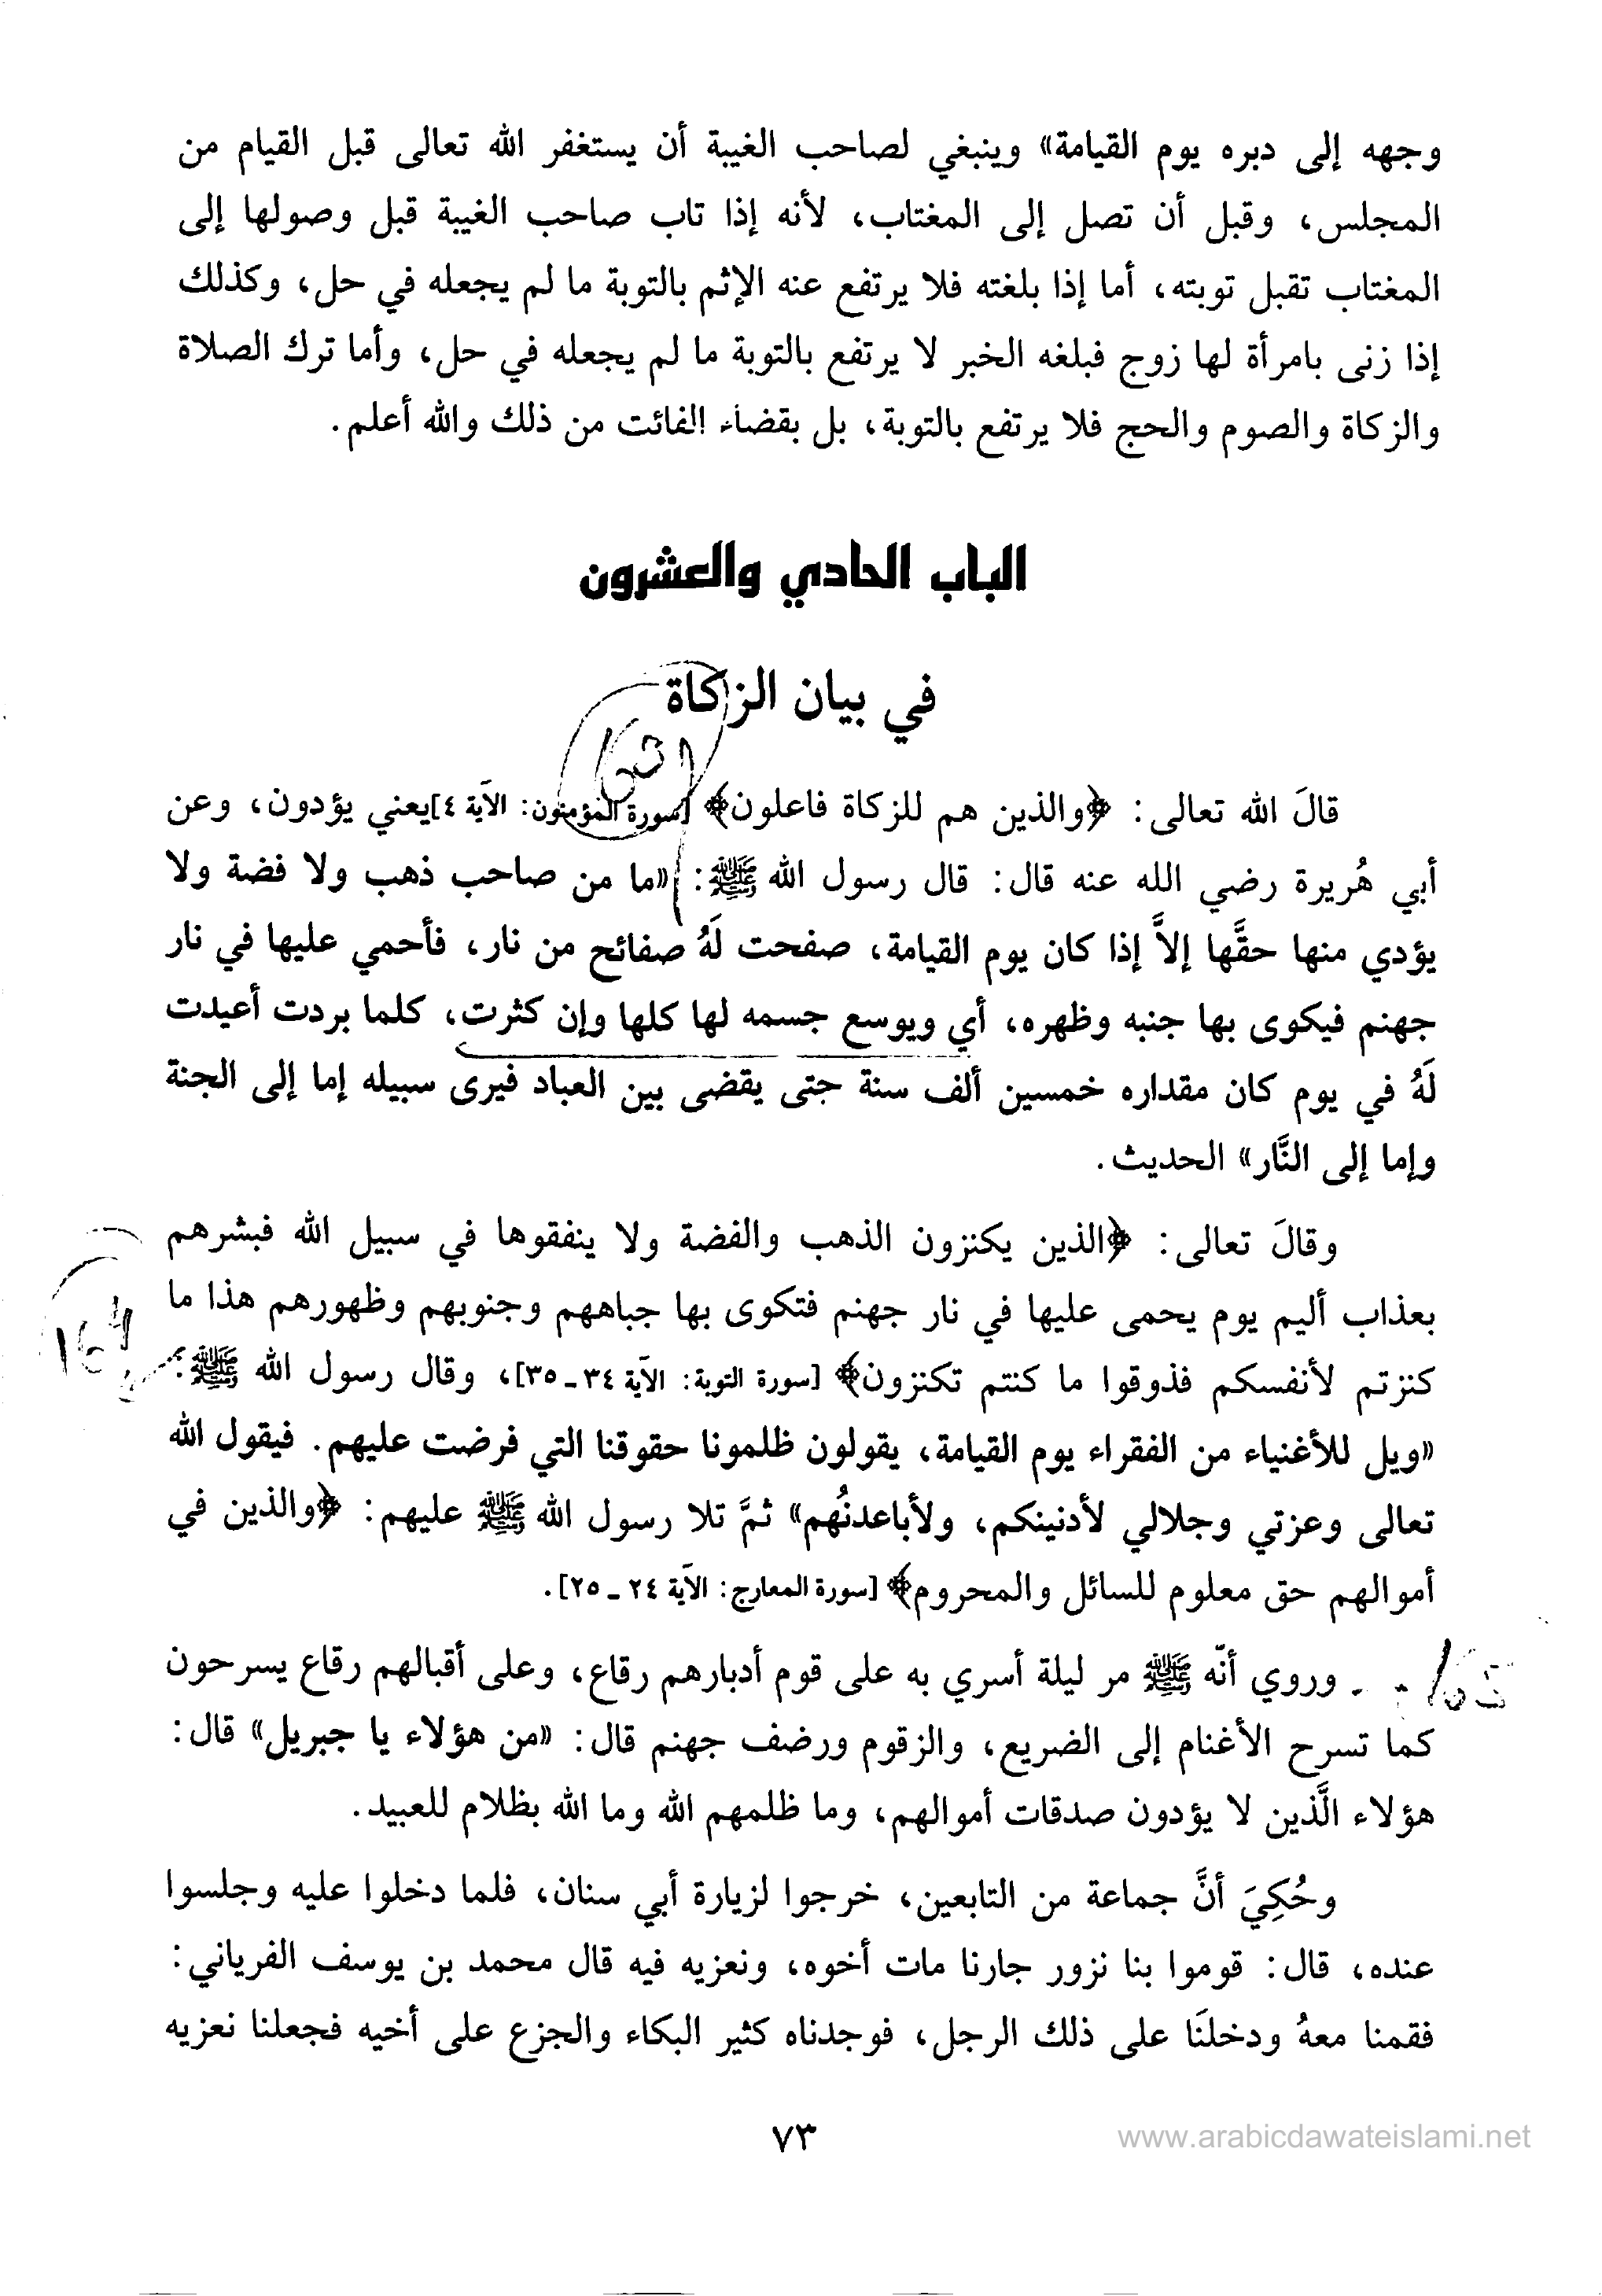 وجهه إلى دبره يوم القيامة» وينبغي لصاحب الغيبة أن يستغفر الله تعالى قبل القيام من
المجلس، وقبل أن تصل إلى المغتاب، لأنه إذا تاب صاحب الغيبة قبل وصولها إلى
المغتاب تقبل توبته، أما إذا بلغته فلا يرتفع عنه الإثم بالتوبة ما لم يجعله في حل، وكذلك
إذا زنى بامرأة لها زوج فبلغه الخبر لا يرتفع بالتوبة ما لم يجعله في حل، وأما ترك الصلاة
والزكاة والصوم والحج فلا يرتفع بالتوبة، بل بقضاء الفائت من ذلك والله أعلم.
الباب الحادي والعشرون
في بيان الزكاة
قالَ الله تعالى: ﴿والذين هم للزكاة فاعلون﴾ [سورة المؤمنون: الآية ٤]يعني يؤدون، وعن
أبي هُريرة رضي الله عنه قال: قال رسول الله ﷺ: «ما من صاحب ذهب ولا فضة ولا
يؤدي منها حقَّها إلاَّ إذا كان يوم القيامة، صفحت لَهُ صفائح من نار، فأحمي عليها في نار
جهنم فيكوى بها جنبه وظهره، أي ويوسع جسمه لها كلها وإن كثرت، كلما بردت أعيدت
لَهُ في يوم كان مقداره خمسين ألف سنة جتى يقضى بين العباد فيرى سبيله إما إلى الجنة
وإما إلى النَّار» الحديث.
وقالَ تعالى: ﴿الذين يكنزون الذهب والفضة ولا ينفقوها في سبيل الله فبشرهم
بعذاب أليم يوم يحمى عليها في نار جهنم فتكوى بها جباههم وجنوبهم وظهورهم هذا ما
كنزتم لأنفسكم فذوقوا ما كنتم تكنزون﴾ [سورة التوبة: الآية ٣٤ ـ ٣٥]، وقال رسول الله ﷺ:
«ويل للأغنياء من الفقراء يوم القيامة، يقولون ظلمونا حقوقنا التي فرضت عليهم. فيقول الله
تعالى وعزتي وجلالي لأدنينكم، ولأباعدنُهم» ثمَّ تلا رسول الله ﷺ عليهم: ﴿والذين في
أموالهم حق معلوم للسائل والمحروم﴾ [سورة المعارج: الآية ٢٤ ـ ٢٥].
وروي أنّه ﷺ مر ليلة أسري به على قوم أدبارهم رقاع، وعلى أقبالهم رقاع يسرحون
كما تسرح الأغنام إلى الضريع، والزقوم ورضف جهنم قال: «من هؤلاء يا جبريل» قال:
هؤلاء الَّذين لا يؤدون صدقات أموالهم، وما ظلمهم الله وما الله بظلام للعبيد.
وحُكِيَ أنَّ جماعة من التابعين، خرجوا لزيارة أبي سنان، فلما دخلوا عليه وجلسوا
عنده، قال: قوموا بنا نزور جارنا مات أخوه، ونعزيه فيه قال محمد بن يوسف الفرياني:
فقمنا معهُ ودخلنَا على ذلك الرجل، فوجدناه كثير البكاء والجزع على أخيه فجعلنا نعزيه
٧٣
www.arabicdawateislami.net